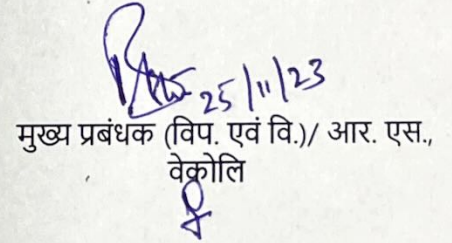 25/11/23
मुख्य प्रबंधक (विप. एवं वि.)/ आर. एस.,
वेकोलि